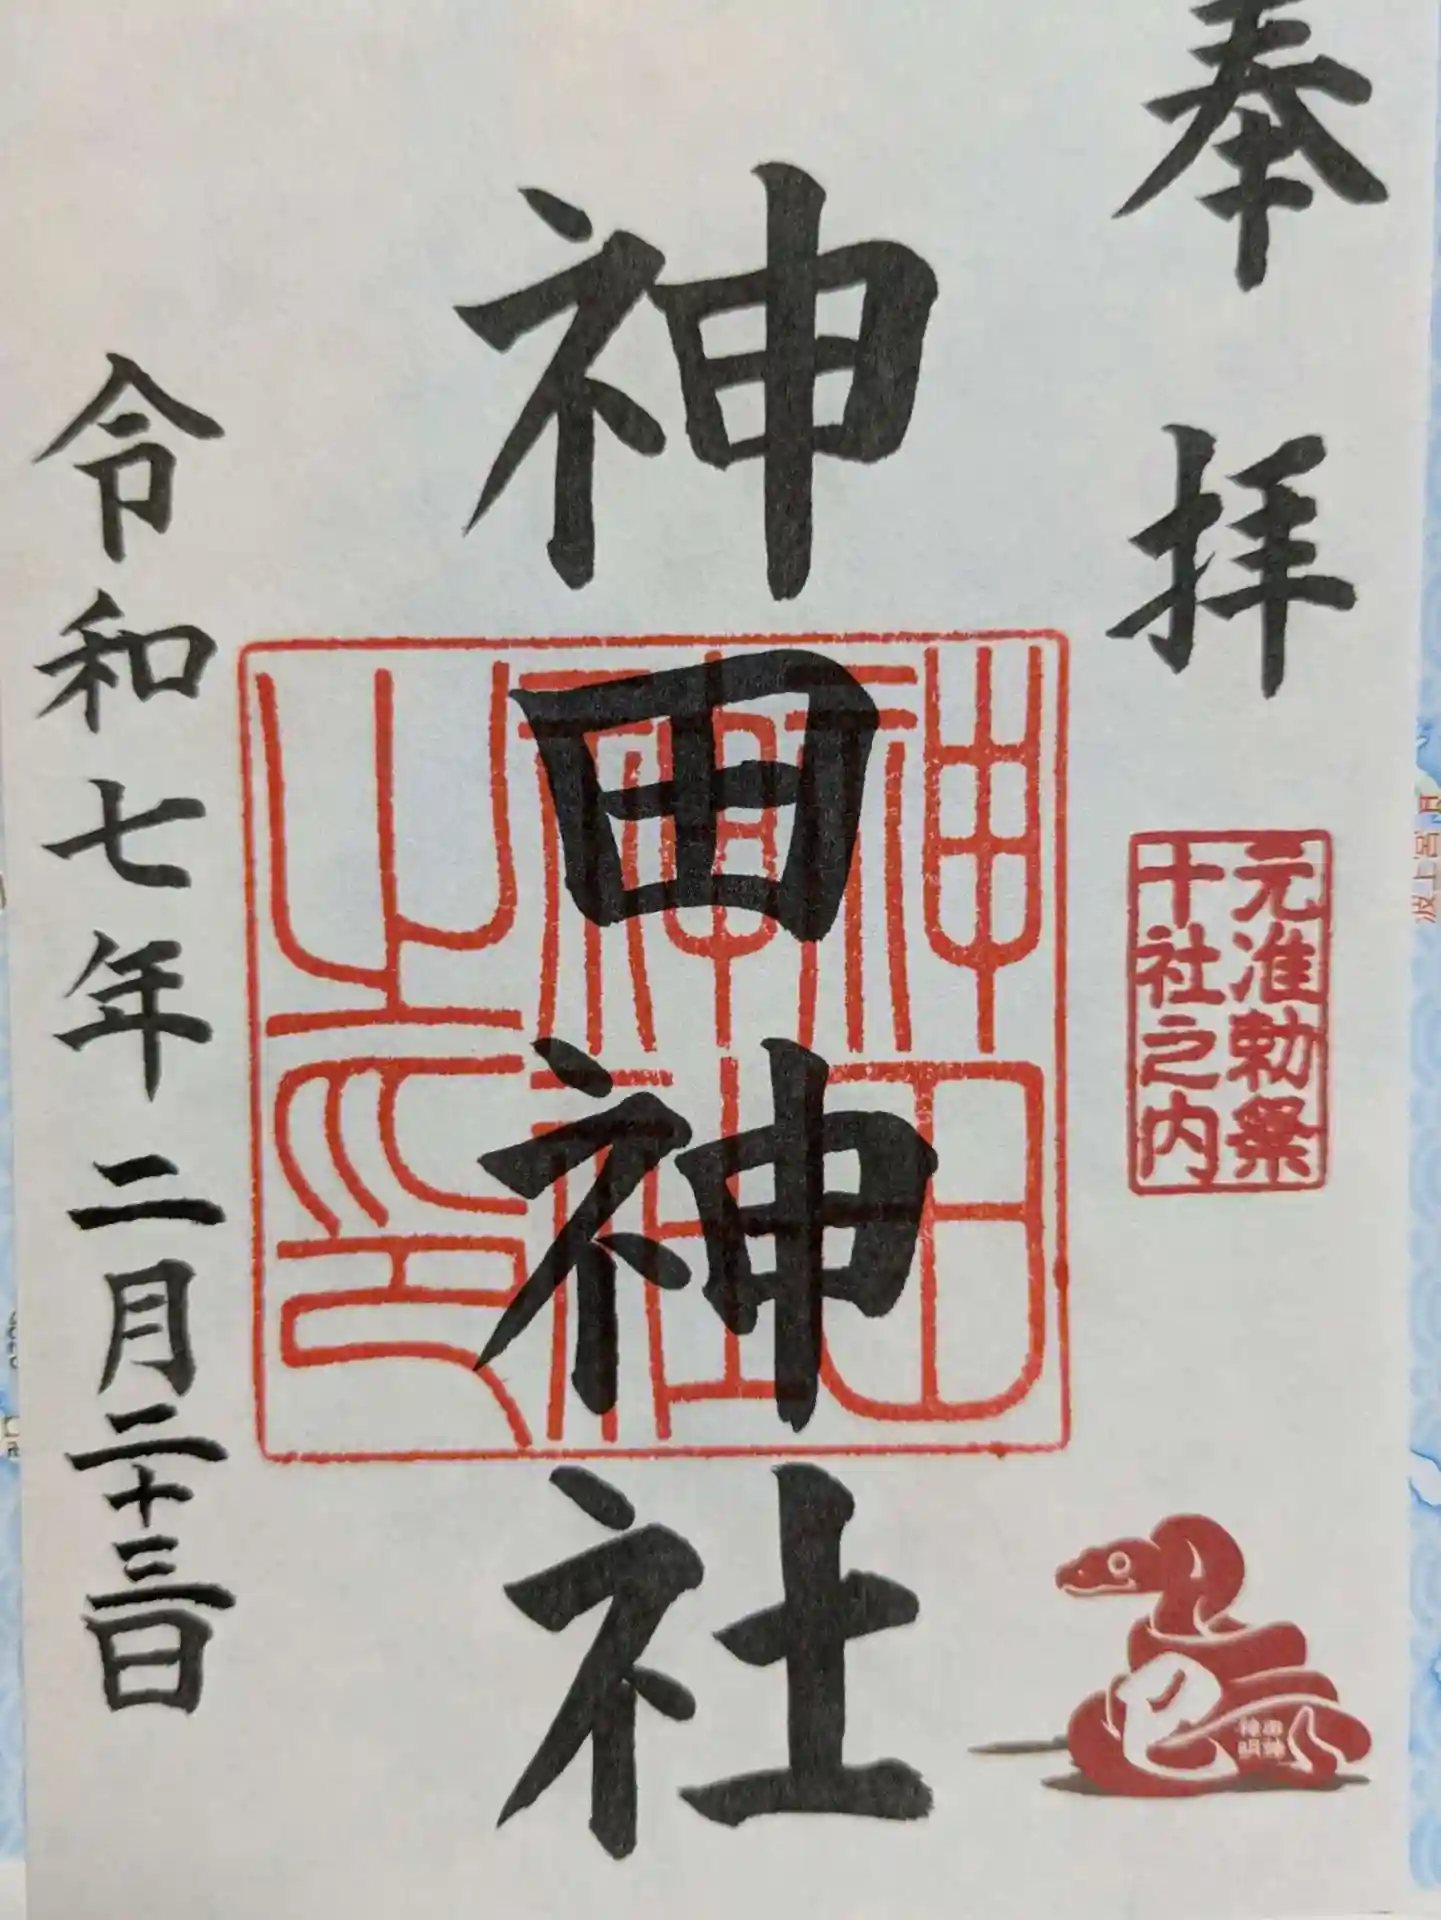 奉拝
元准勅祭
十社之内
巳
神田神社
神田
神社
之印
令和七年二月二十三日
波上宮